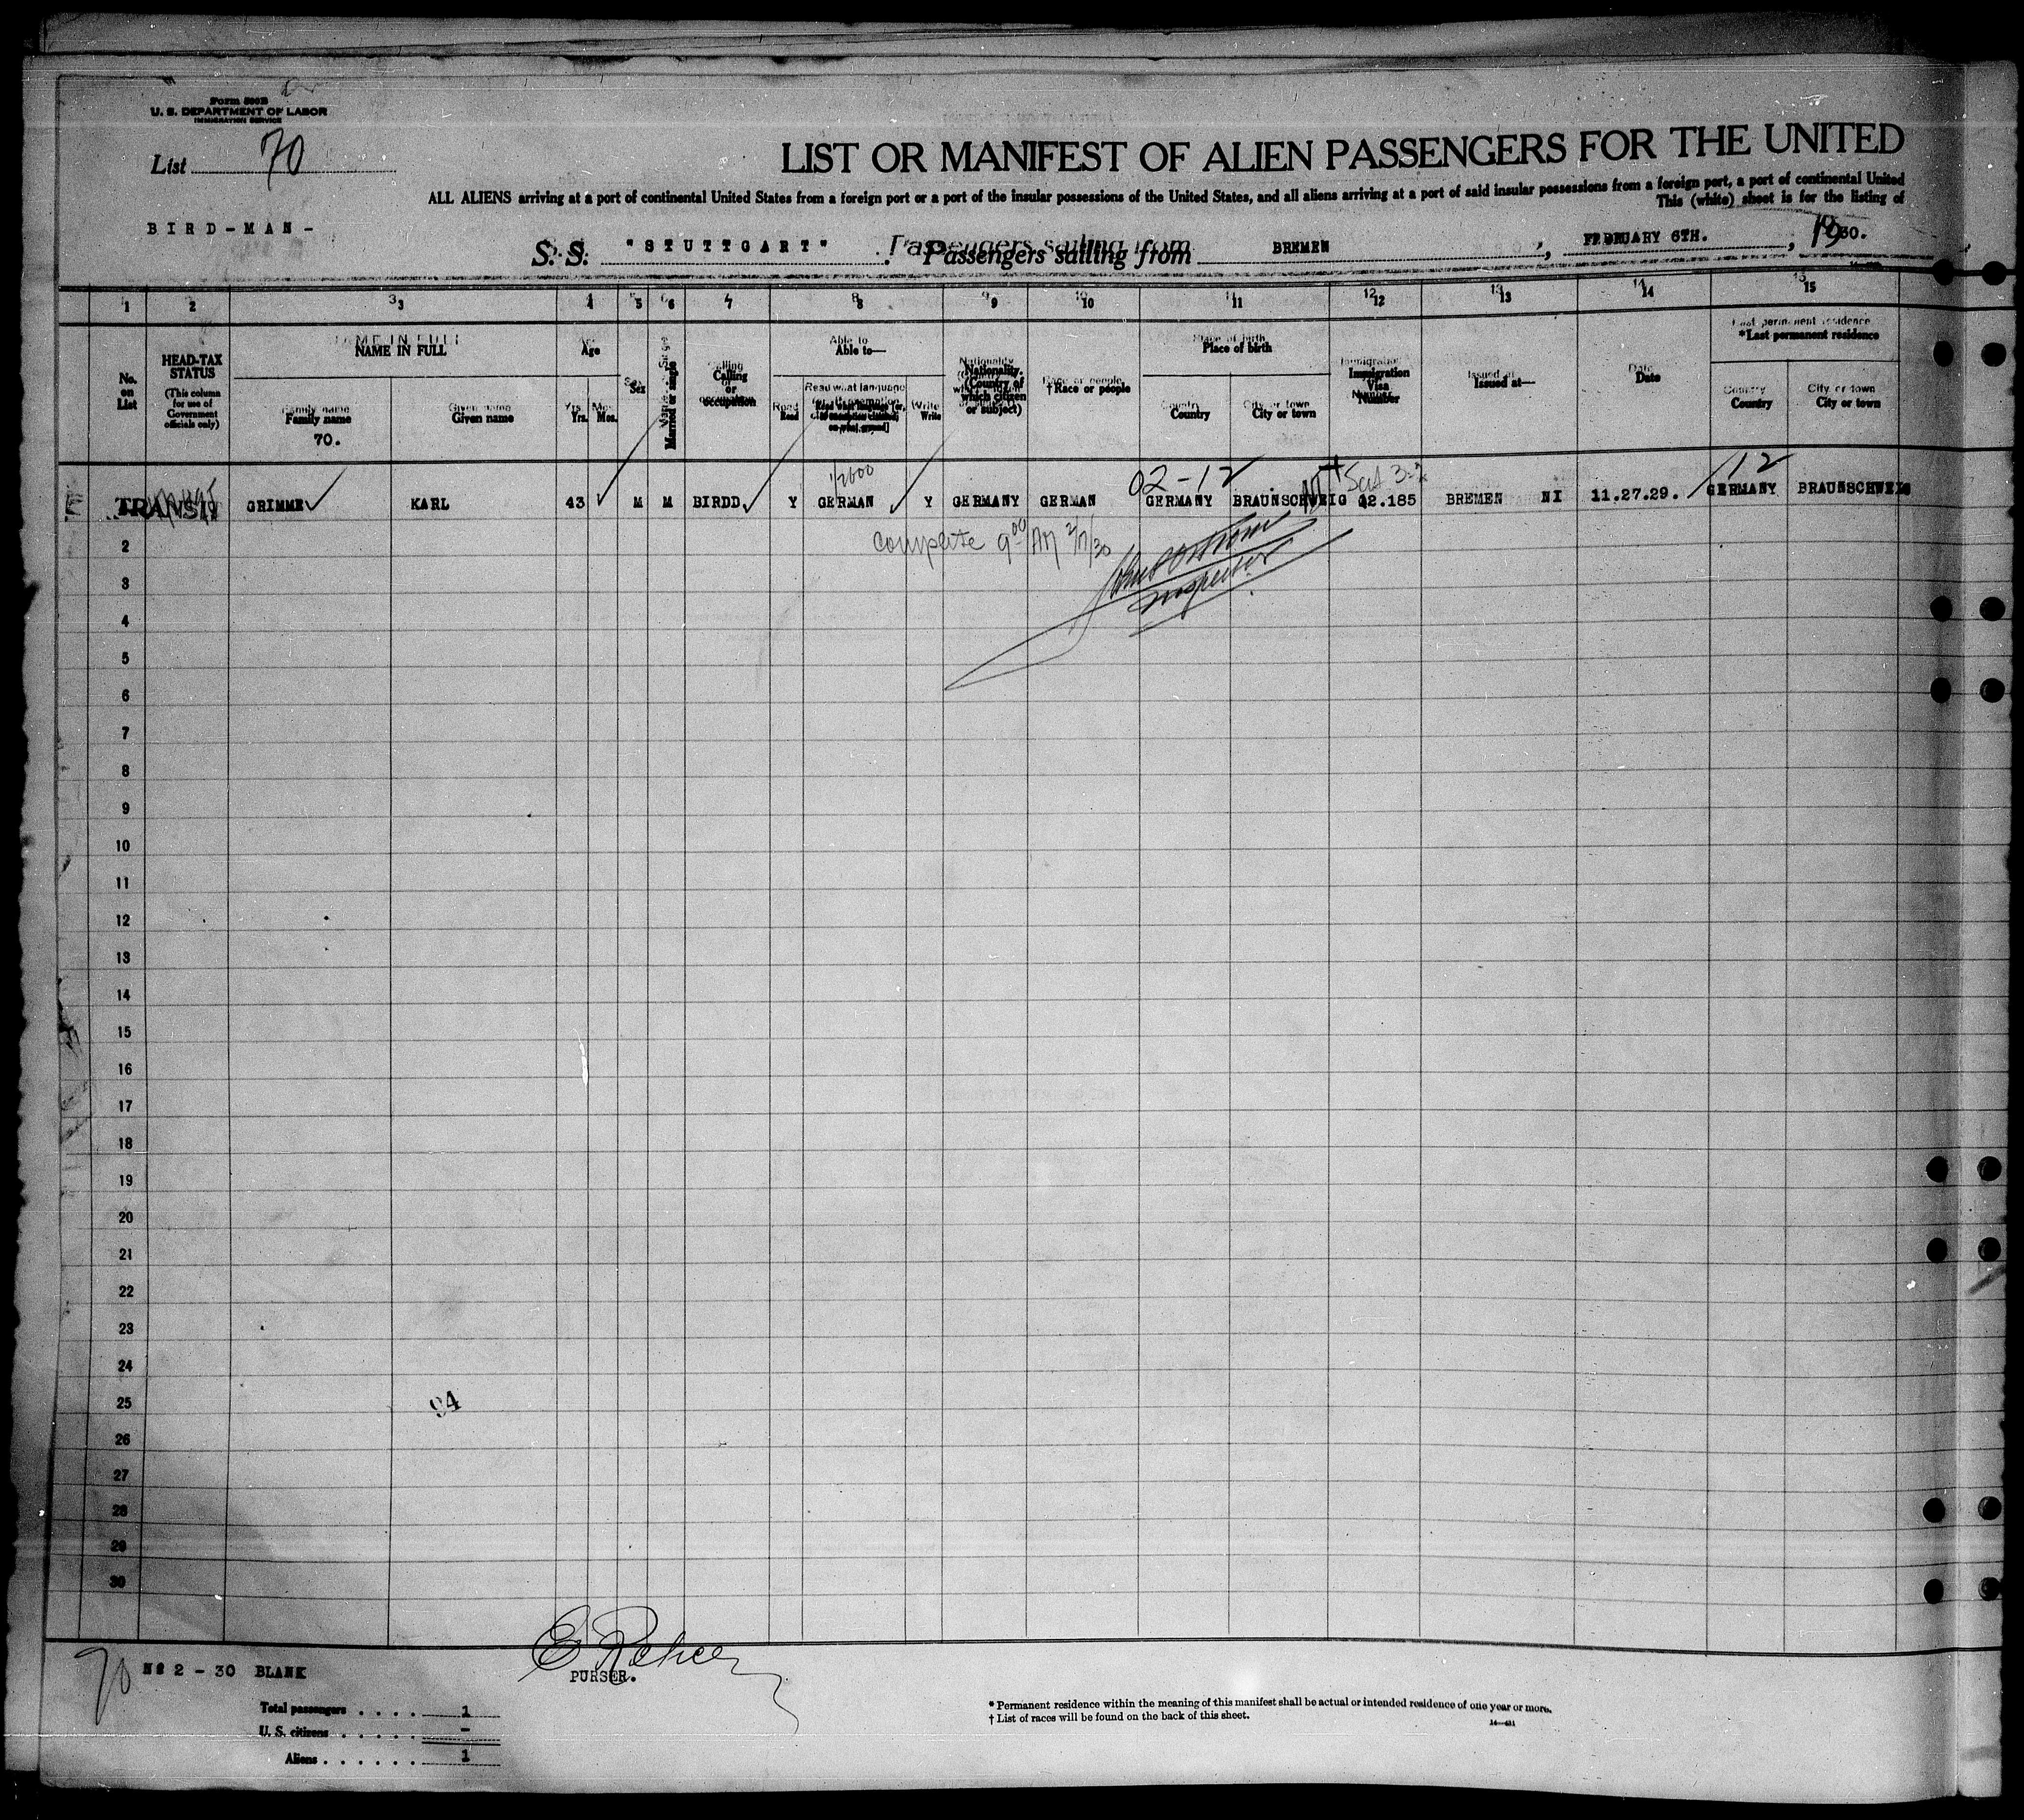 Form 500B
U. S. DEPARTMENT OF LABOR
IMMIGRATION SERVICE
List 70
LIST OR MANIFEST OF ALIEN PASSENGERS FOR THE UNITED
ALL ALIENS arriving at a port of continental United States from a foreign port or a port of the insular possessions of the United States, and all aliens arriving at a port of said insular possessions from a foreign port, a port of continental United
This (white) sheet is for the listing of
BIRD-MAN-
S. S. "STUTTGART" Passengers sailing from BREMEN, FEBRUARY 6TH., 1930.
1 2 3 4 5 6 7 8 9 10 11 12 13 14 15
No. on List
HEAD-TAX STATUS
(This column for use of Government officials only)
NAME IN FULL
Family name
70.
Given name
Age
Yrs. Mos.
Sex
Married or single
Calling or occupation
Able to—
Read
Read what language [or, if exemption claimed, on what ground]
Write
Nationality. (Country of which citizen or subject)
† Race or people
Place of birth
Country
City or town
Immigration Visa Number
Issued at—
Date
*Last permanent residence
Country
City or town
1/2600 02-12 12
TRANSIT GRIMME KARL 43 M M BIRDD Y GERMAN Y GERMANY GERMAN GERMANY BRAUNSCHWEIG Q2.185 BREMEN NI 11.27.29. GERMANY BRAUNSCHWEIG
complete 9 00 AM
Inspector
2
3
4
5
6
7
8
9
10
11
12
13
14
15
16
17
18
19
20
21
22
23
24
25 94
26
27
28
29
30
70 No 2 - 30 BLANK
PURSER.
Total passengers . . . . 1
U. S. citizens . . . . . -
Aliens . . . . . . 1
* Permanent residence within the meaning of this manifest shall be actual or intended residence of one year or more.
† List of races will be found on the back of this sheet.